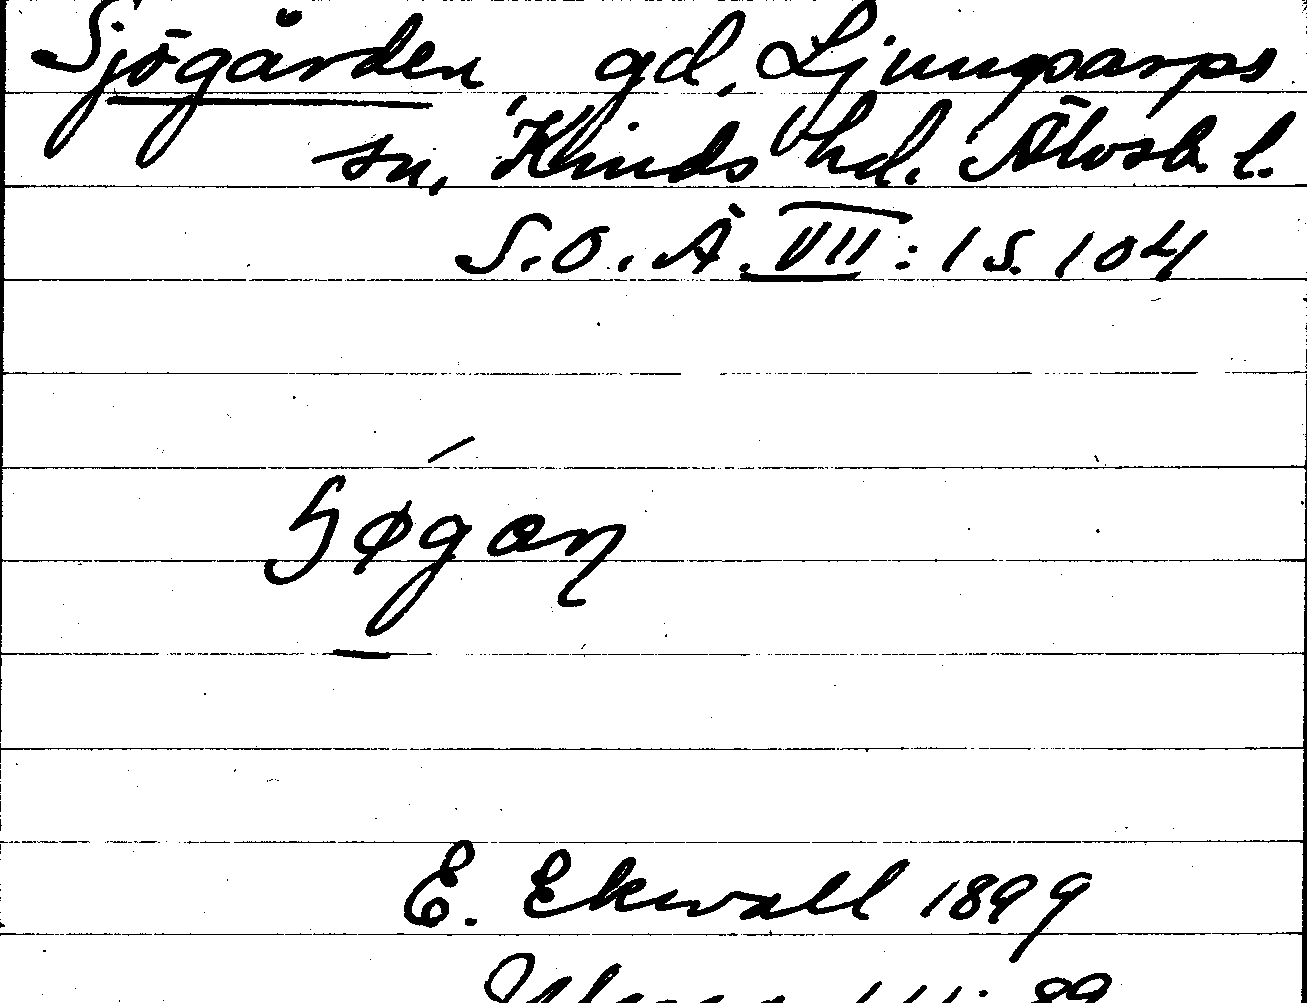 Sjögården gd, Ljungsarps
sn, Kinds hd. Älvsb. l.
S.O.Ä. VII:1 s. 104
E. Ekwall 1899